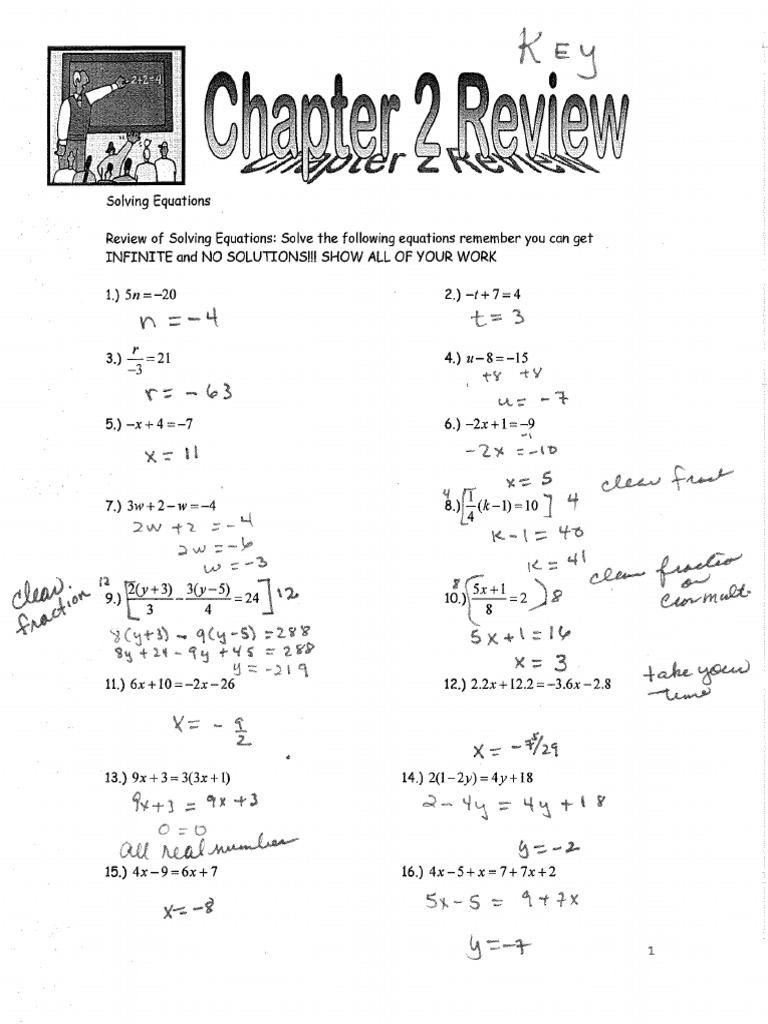 KEY
2+2=4
Chapter 2 Review
Solving Equations
Review of Solving Equations: Solve the following equations remember you can get
INFINITE and NO SOLUTIONS!!! SHOW ALL OF YOUR WORK
1.) 5n = -20
n = -4
2.) -t + 7 = 4
t = 3
3.) r/-3 = 21
r = -63
4.) u - 8 = -15
+8 +8
u = -7
5.) -x + 4 = -7
x = 11
6.) -2x + 1 = -9
-1
-2x = -10
x = 5
7.) 3w + 2 - w = -4
2w + 2 = -4
2w = -6
w = -3
clear fract
4 8.) [1/4(k - 1) = 10] 4
k - 1 = 40
k = 41
clear fraction
12 9.) [2(y + 3)/3 - 3(y - 5)/4 = 24] 12
8(y+3) - 9(y-5) = 288
8y + 24 - 9y + 45 = 288
y = -219
clear fraction
or
Cross mult.
8 10.) (5x + 1/8 = 2) 8
5x + 1 = 16
x = 3
11.) 6x + 10 = -2x - 26
x = - 9/2
take your
time
12.) 2.2x + 12.2 = -3.6x - 2.8
x = -75/29
13.) 9x + 3 = 3(3x + 1)
9x + 3 = 9x + 3
0 = 0
all real number
14.) 2(1 - 2y) = 4y + 18
2 - 4y = 4y + 18
y = -2
15.) 4x - 9 = 6x + 7
x = -8
16.) 4x - 5 + x = 7 + 7x + 2
5x - 5 = 9 + 7x
y = -7
1